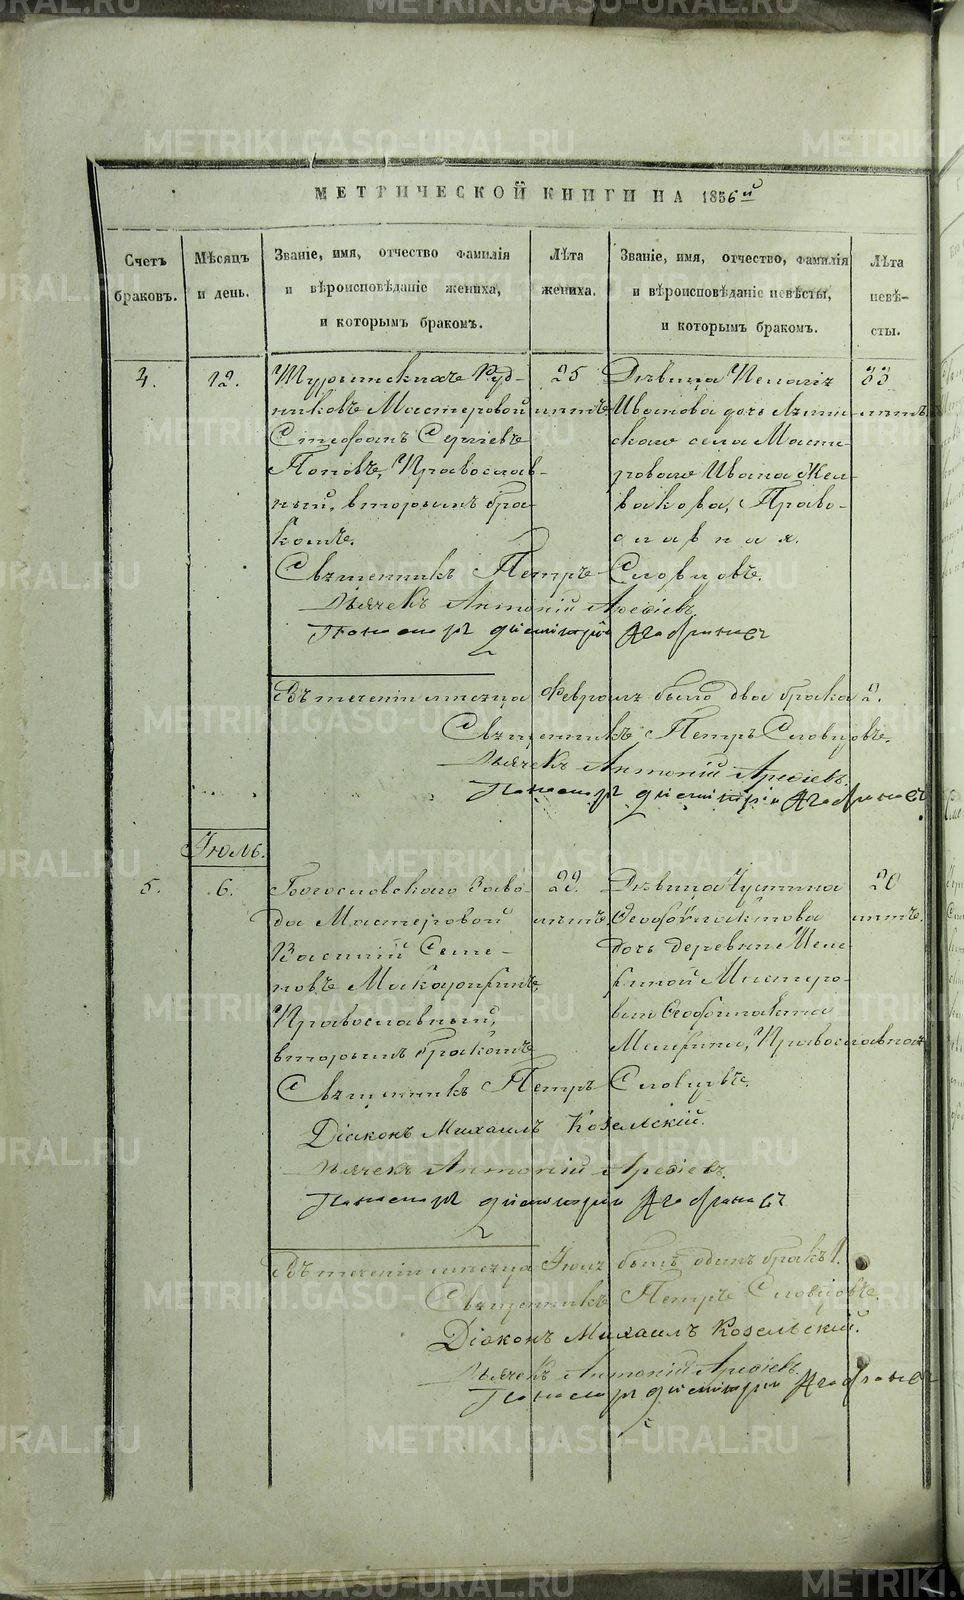 МЕТРИЧЕСКОЙ КНИГИ НА 1856й
Счетъ браковъ.
Мѣсяцъ и день.
Званіе, имя, отчество фамилія и вѣроисповѣданіе жениха, и которымъ бракомъ.
Лѣта жениха.
Званіе, имя, отчество, фамилія и вѣроисповѣданіе невѣсты, и которымъ бракомъ.
Лѣта невѣ-сты.
4.
12.
Турьинскихъ Руд-
никовъ Мастеровой
Стефанъ Сергіевъ
Поповъ, Православ-
ный, вторымъ бра-
комъ.
25
лѣтъ
Дѣвица Пелагія
Иванова дочь
скаго села Масте-
роваго Ивана Жел-
вакова, Право-
славная.
33
лѣтъ.
Священникъ Петръ Словцовъ.
Дьячекъ Антоній Арефіевъ
Пономарь Димитрій
Въ теченіи месяца Февраля было два брака 2.
Священникъ Петръ Словцовъ.
Дьячекъ Антоній Арефіевъ.
Пономарь Димитрій
Іюль.
5.
6.
Богословскаго Заво-
да Мастеровой
Василій Семе-
новъ
Православный,
вторымъ бракомъ
22.
лѣтъ.
Дѣвица Устина
Феофилактова
дочь деревни Меле-
хиной Мастеро-
ваго Феофилакта
Мелехина, Православная
20
лѣтъ.
Священникъ Петръ Словцовъ.
Діаконъ Михаилъ Козельскій.
Дьячекъ Антоній Арефіевъ.
Пономарь Димитрій
Въ теченіи месяца Іюля былъ одинъ бракъ 1.
Священникъ Петръ Словцовъ.
Діаконъ Михаилъ Козельскій.
Дьячекъ Антоній Арефіевъ.
Пономарь Димитрій
METRIKI.GASO-URAL.RU